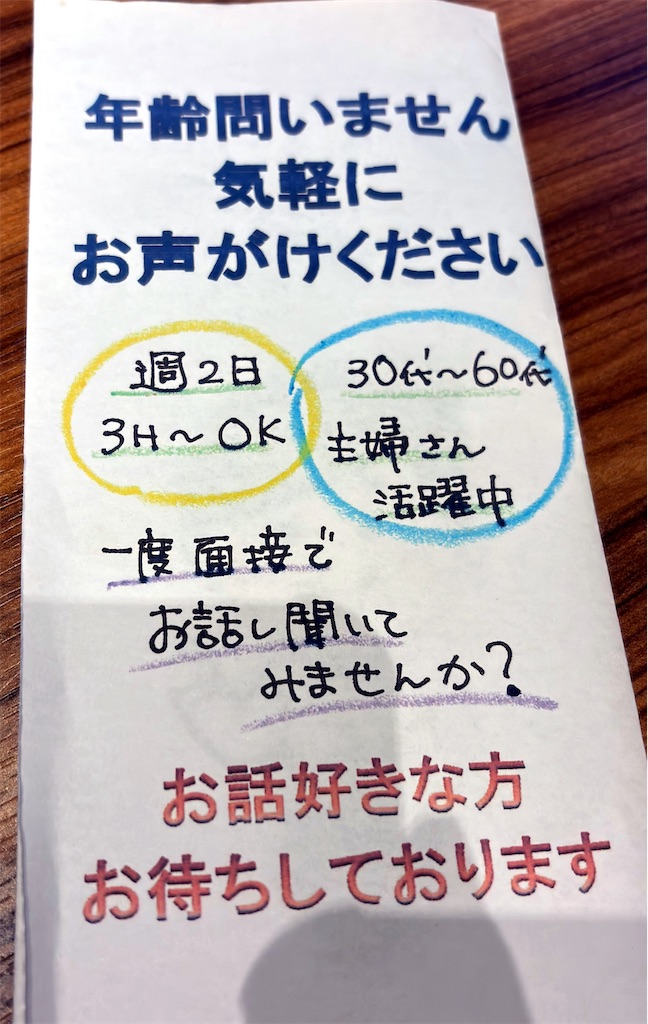 年齢問いません
気軽に
お声がけください
週2日
3H～OK
30代～60代
主婦さん
活躍中
一度面接で
お話し聞いて
みませんか?
お話好きな方
お待ちしております